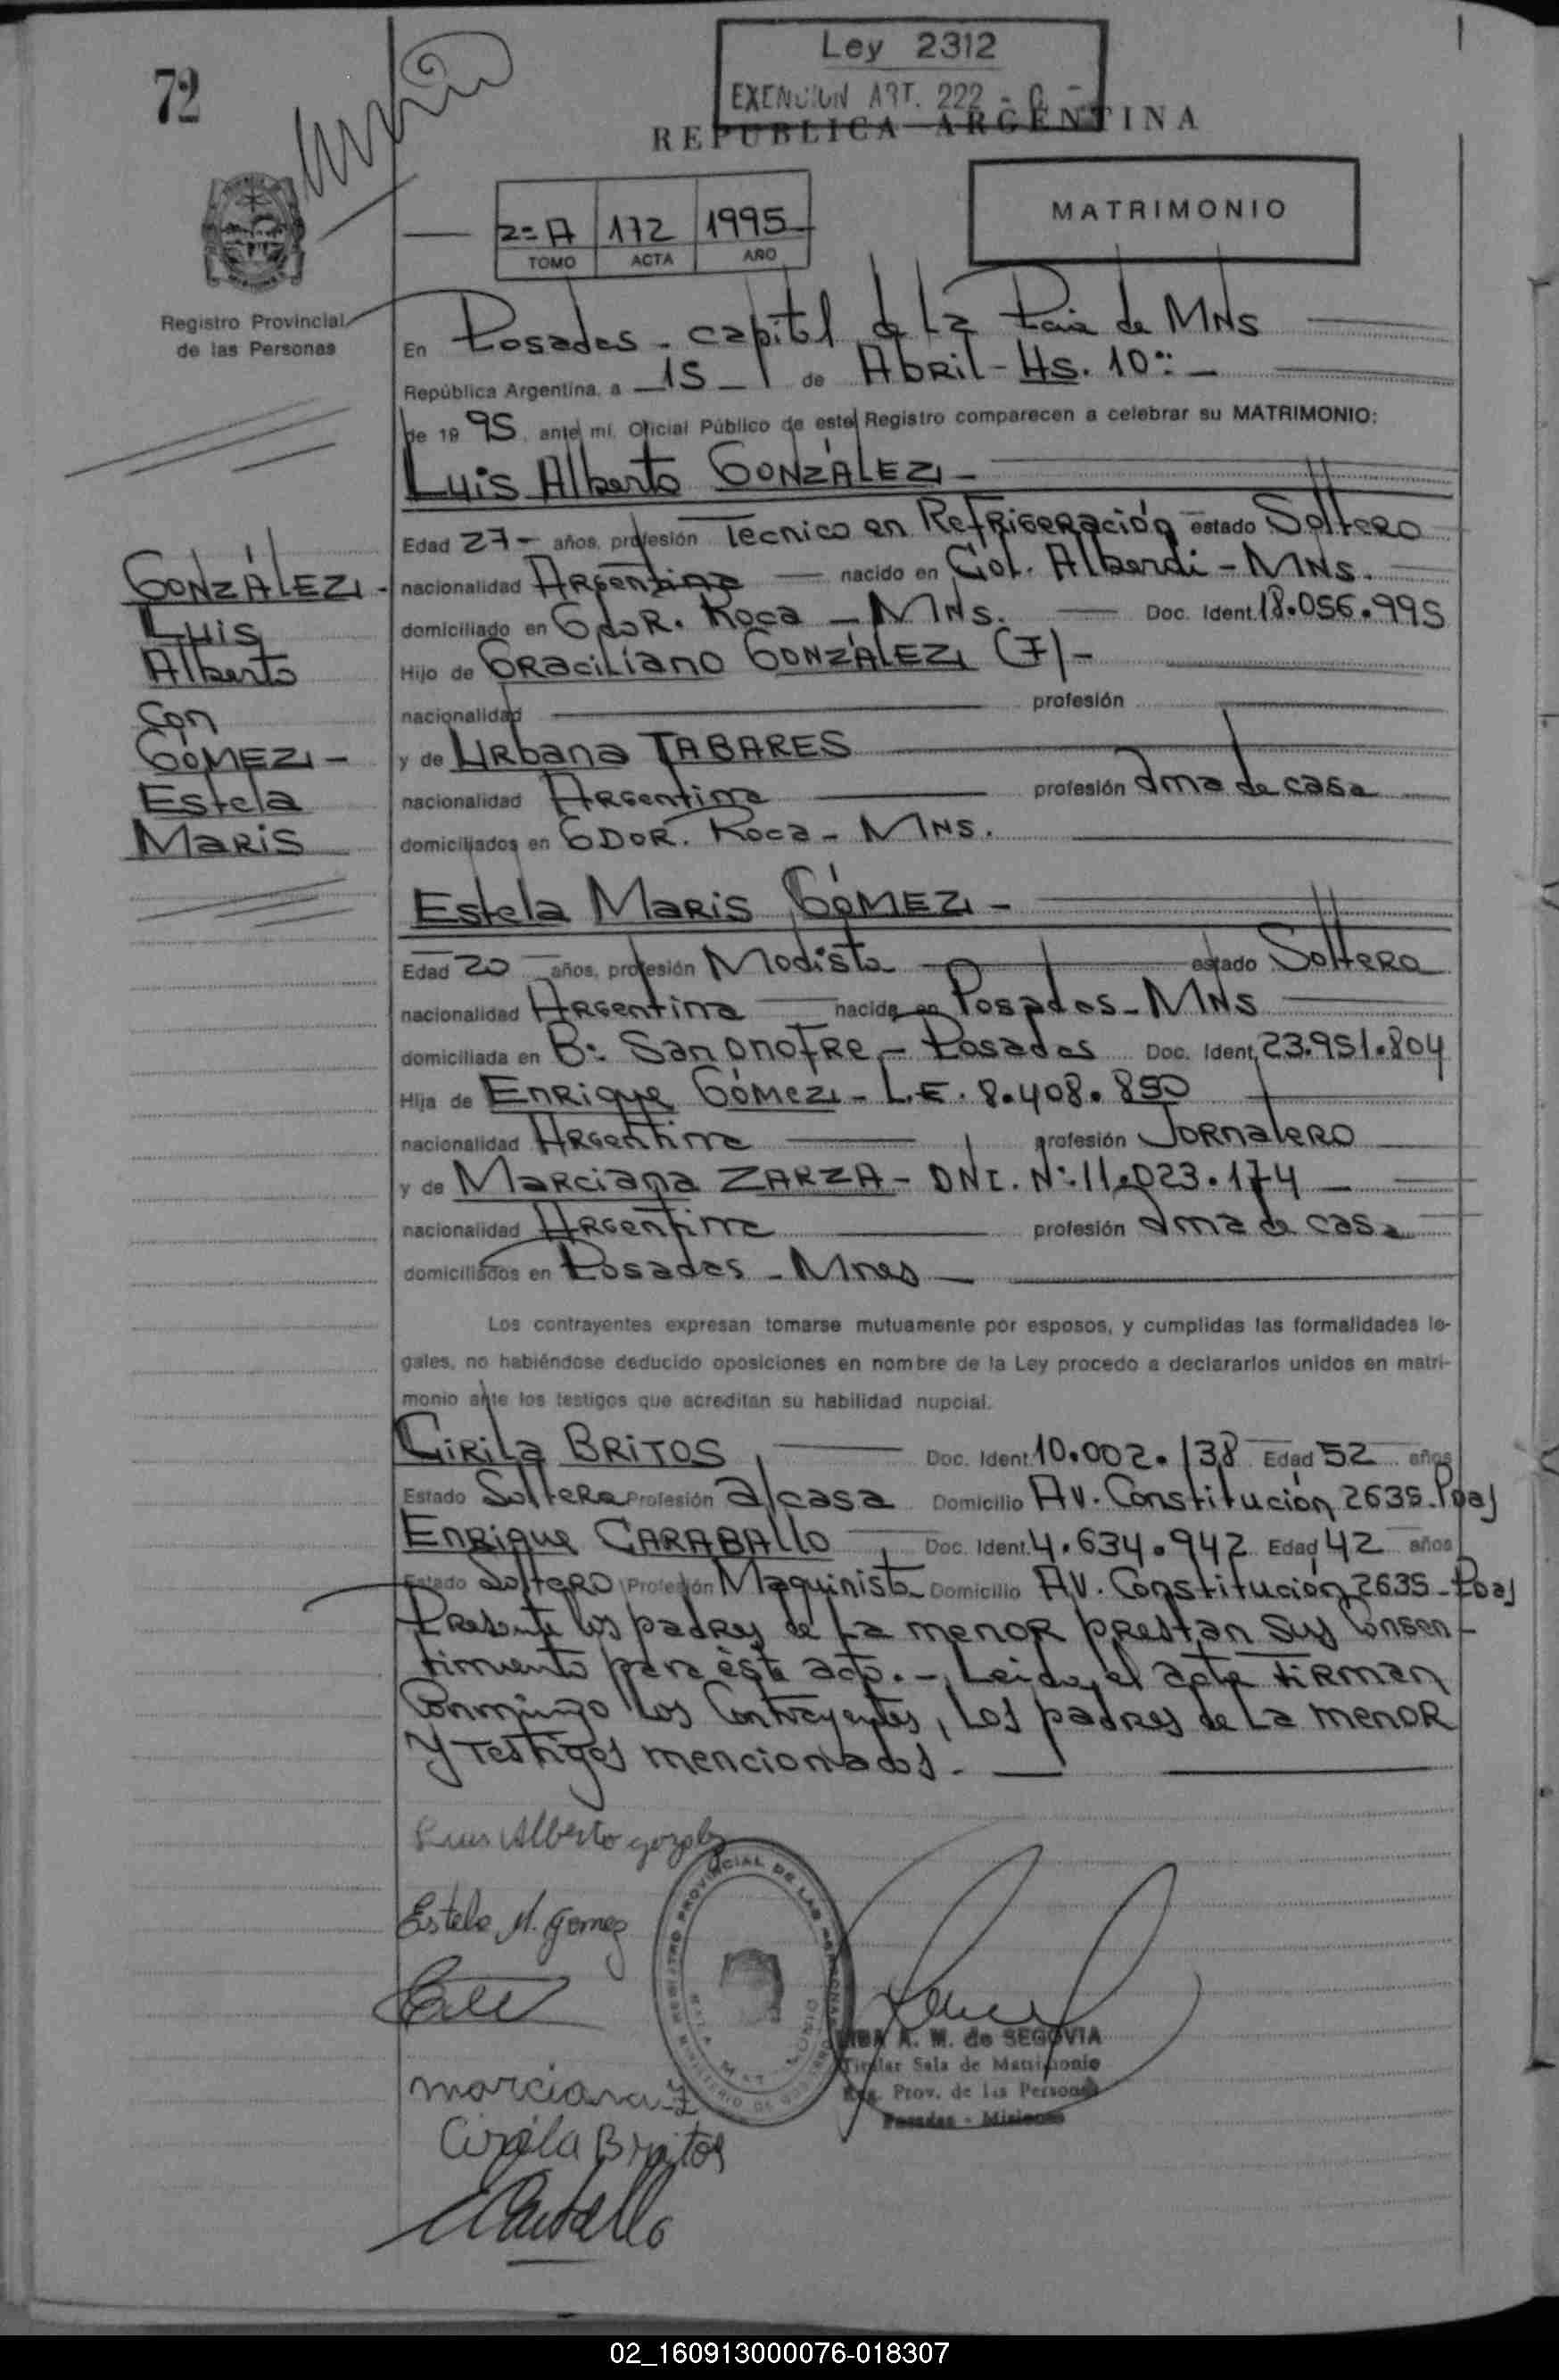 72
Ley 2312
EXENCION ART. 222 -
REPUBLICA ARGENTINA
2º A 172 1995
TOMO ACTA AÑO
MATRIMONIO
Registro Provincial
de las Personas
En Posadas - capital de la Pcia de MNS
República Argentina, a 15 - de Abril - Hs. 10:-
de 1995, ante mí, Oficial Público de este Registro comparecen a celebrar su MATRIMONIO:
Luis Alberto GONZÁLEZ -
Edad 27 - años, profesión Tecnico en Refrigeración estado Soltero
nacionalidad Argentina nacido en Col. Alberdi - MNS.
domiciliado en Gdor. Roca - MNS. Doc. Ident. 18.056.995
Hijo de Graciliano GONZÁLEZ (F) -
nacionalidad profesión
y de Urbana TABARES
nacionalidad Argentina profesión ama de casa
domiciliados en GDOR. Roca - MNS.
GONZÁLEZ -
Luis
Alberto
Con
GÓMEZ -
Estela
Maris
Estela Maris GÓMEZ -
Edad 20 años, profesión Modista estado Soltera
nacionalidad Argentina nacida en Posadas - MNS
domiciliada en Bº San Onofre - Posadas Doc. Ident. 23.951.804
Hija de Enrique Gómez - L.E. 8.408.850
nacionalidad Argentina profesión Jornalero
y de Marciana ZARZA - DNI. Nº 11.023.174
nacionalidad Argentina profesión ama de casa
domiciliados en Posadas - Mnes
Los contrayentes expresan tomarse mutuamente por esposos, y cumplidas las formalidades le-
gales, no habiéndose deducido oposiciones en nombre de la Ley procedo a declararlos unidos en matri-
monio ante los testigos que acreditan su habilidad nupcial.
Cirila BRITOS Doc. Ident. 10.002.138 Edad 52 años
Estado Soltera Profesión a/casa Domicilio Av. Constitución 2635 - Pdas
Enrique CARABALLO Doc. Ident. 4.634.942 Edad 42 años
Estado Soltero Profesión Maquinista Domicilio Av. Constitución 2635 - Pdas
Presente los padres de la menor prestan sus Consen-
timiento para éste acto. - Leida el acta firman
Conmigo los Contrayentes, los padres de la menor
y testigos mencionados. -
Luis Alberto gozalez
Estela M. Gomez
marciana Z
Cirila Britos
REGISTRO PROVINCIAL DE LAS PERSONAS
MINISTERIO DE GOBIERNO
A. M. de SEGOVIA
Titular Sala de Matrimonio
Reg. Prov. de las Personas
Posadas - Misiones
02_160913000076-018307